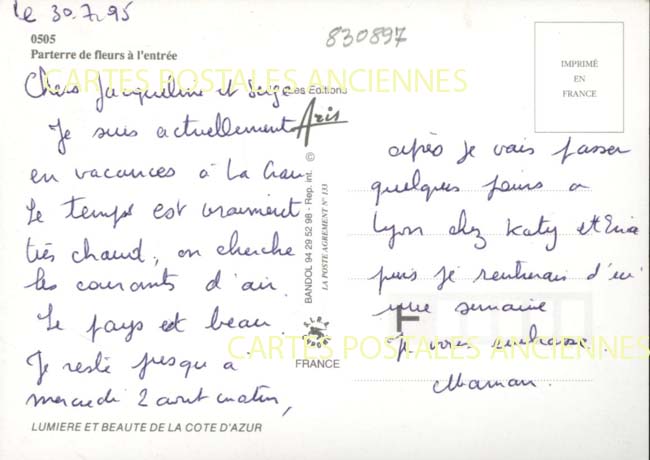 le 30.7.95
830897
0505
Parterre de fleurs à l'entrée
IMPRIMÉ
EN
FRANCE
CARTES POSTALES ANCIENNES
Chers Jacqueline et Serge
Les Editions
Aris
Je suis actuellement
en vacances à La Crau
Le temps est vraiment
très chaud, on cherche
les courants d'air.
Le pays est beau.
Je reste jusqu a
mercredi 2 aout matin,
BANDOL 94 29 52 98 - Rep. int. ©
LA POSTE AGREMENT N° 133
FRANCE
après je vais passer
quelques jours a
Lyon chez Katy et Eric
puis je rentrerais d'ici
une semaine
Je vous embrasse.
Maman.
CARTES POSTALES ANCIENNES
LUMIERE ET BEAUTE DE LA COTE D'AZUR